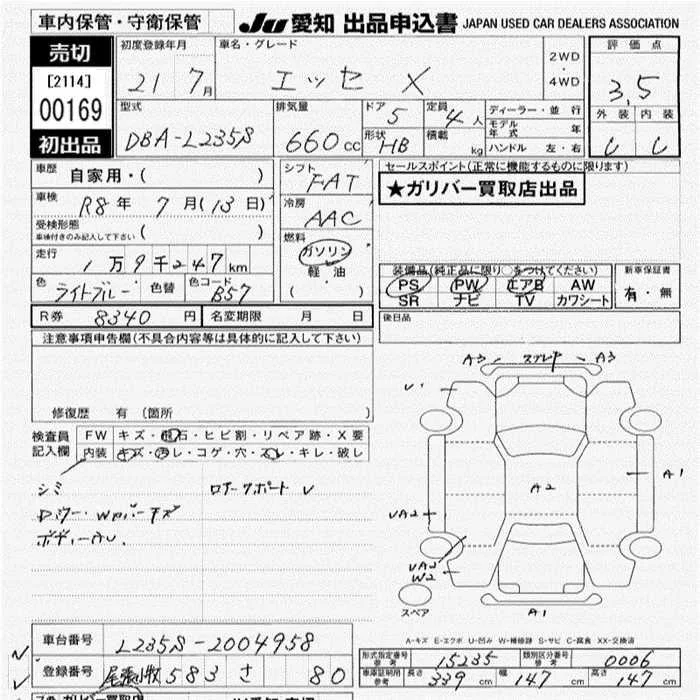 車内保管・守衛保管 JU 愛知 出品申込書 JAPAN USED CAR DEALERS ASSOCIATION
売切
[2114]
00169
初出品
初度登録年月
21 7月
車名・グレード
エッセ X
2WD
・
4WD
評価点
3.5
外装 内装
型式
DBA-L235S
排気量
660cc
ドア 5
形状 HB
定員 4人
積載 kg
ディーラー・並行
モデル年式 年
ハンドル 左・右
車歴
自家用・( )
車検
R8年 7月(13日)
受検形態
車検付きのみ記入して下さい ( )
走行
1万9千247km
色
ライトブルー
色替
色コード
B57
シフト
FAT
冷房
AAC
燃料
ガソリン
軽油
( )
セールスポイント(正常に機能するものに限ります)
★ガリバー買取店出品
装備品(純正品に限り○をつけてください)
PS PW エアB AW
SR ナビ TV カワシート
新車保証書
有・無
R券 8340円 名変期限 月 日
後日品
注意事項申告欄(不具合内容等は具体的に記入して下さい)
修復歴 有 (箇所 )
検査員
記入欄
FW キズ・飛石・ヒビ割・リペア跡・X要
内装 キズ・汚レ・コゲ・穴・スレ・キレ・破レ
シミ
ロアーサポート U
A3 A3
A2
A1
UA2
UA2
W2
A1
スペア
A-キズ E-エクボ U-凹み W-補修跡 S-サビ C-腐食 XX-交換済
車台番号
L235S-2004958
登録番号
尾張小牧 583 さ 80
形式指定番号
参考
15235
類別区分番号
参考
0006
車庫証明用
参考
長さ 339cm 幅 147cm 高さ 147cm